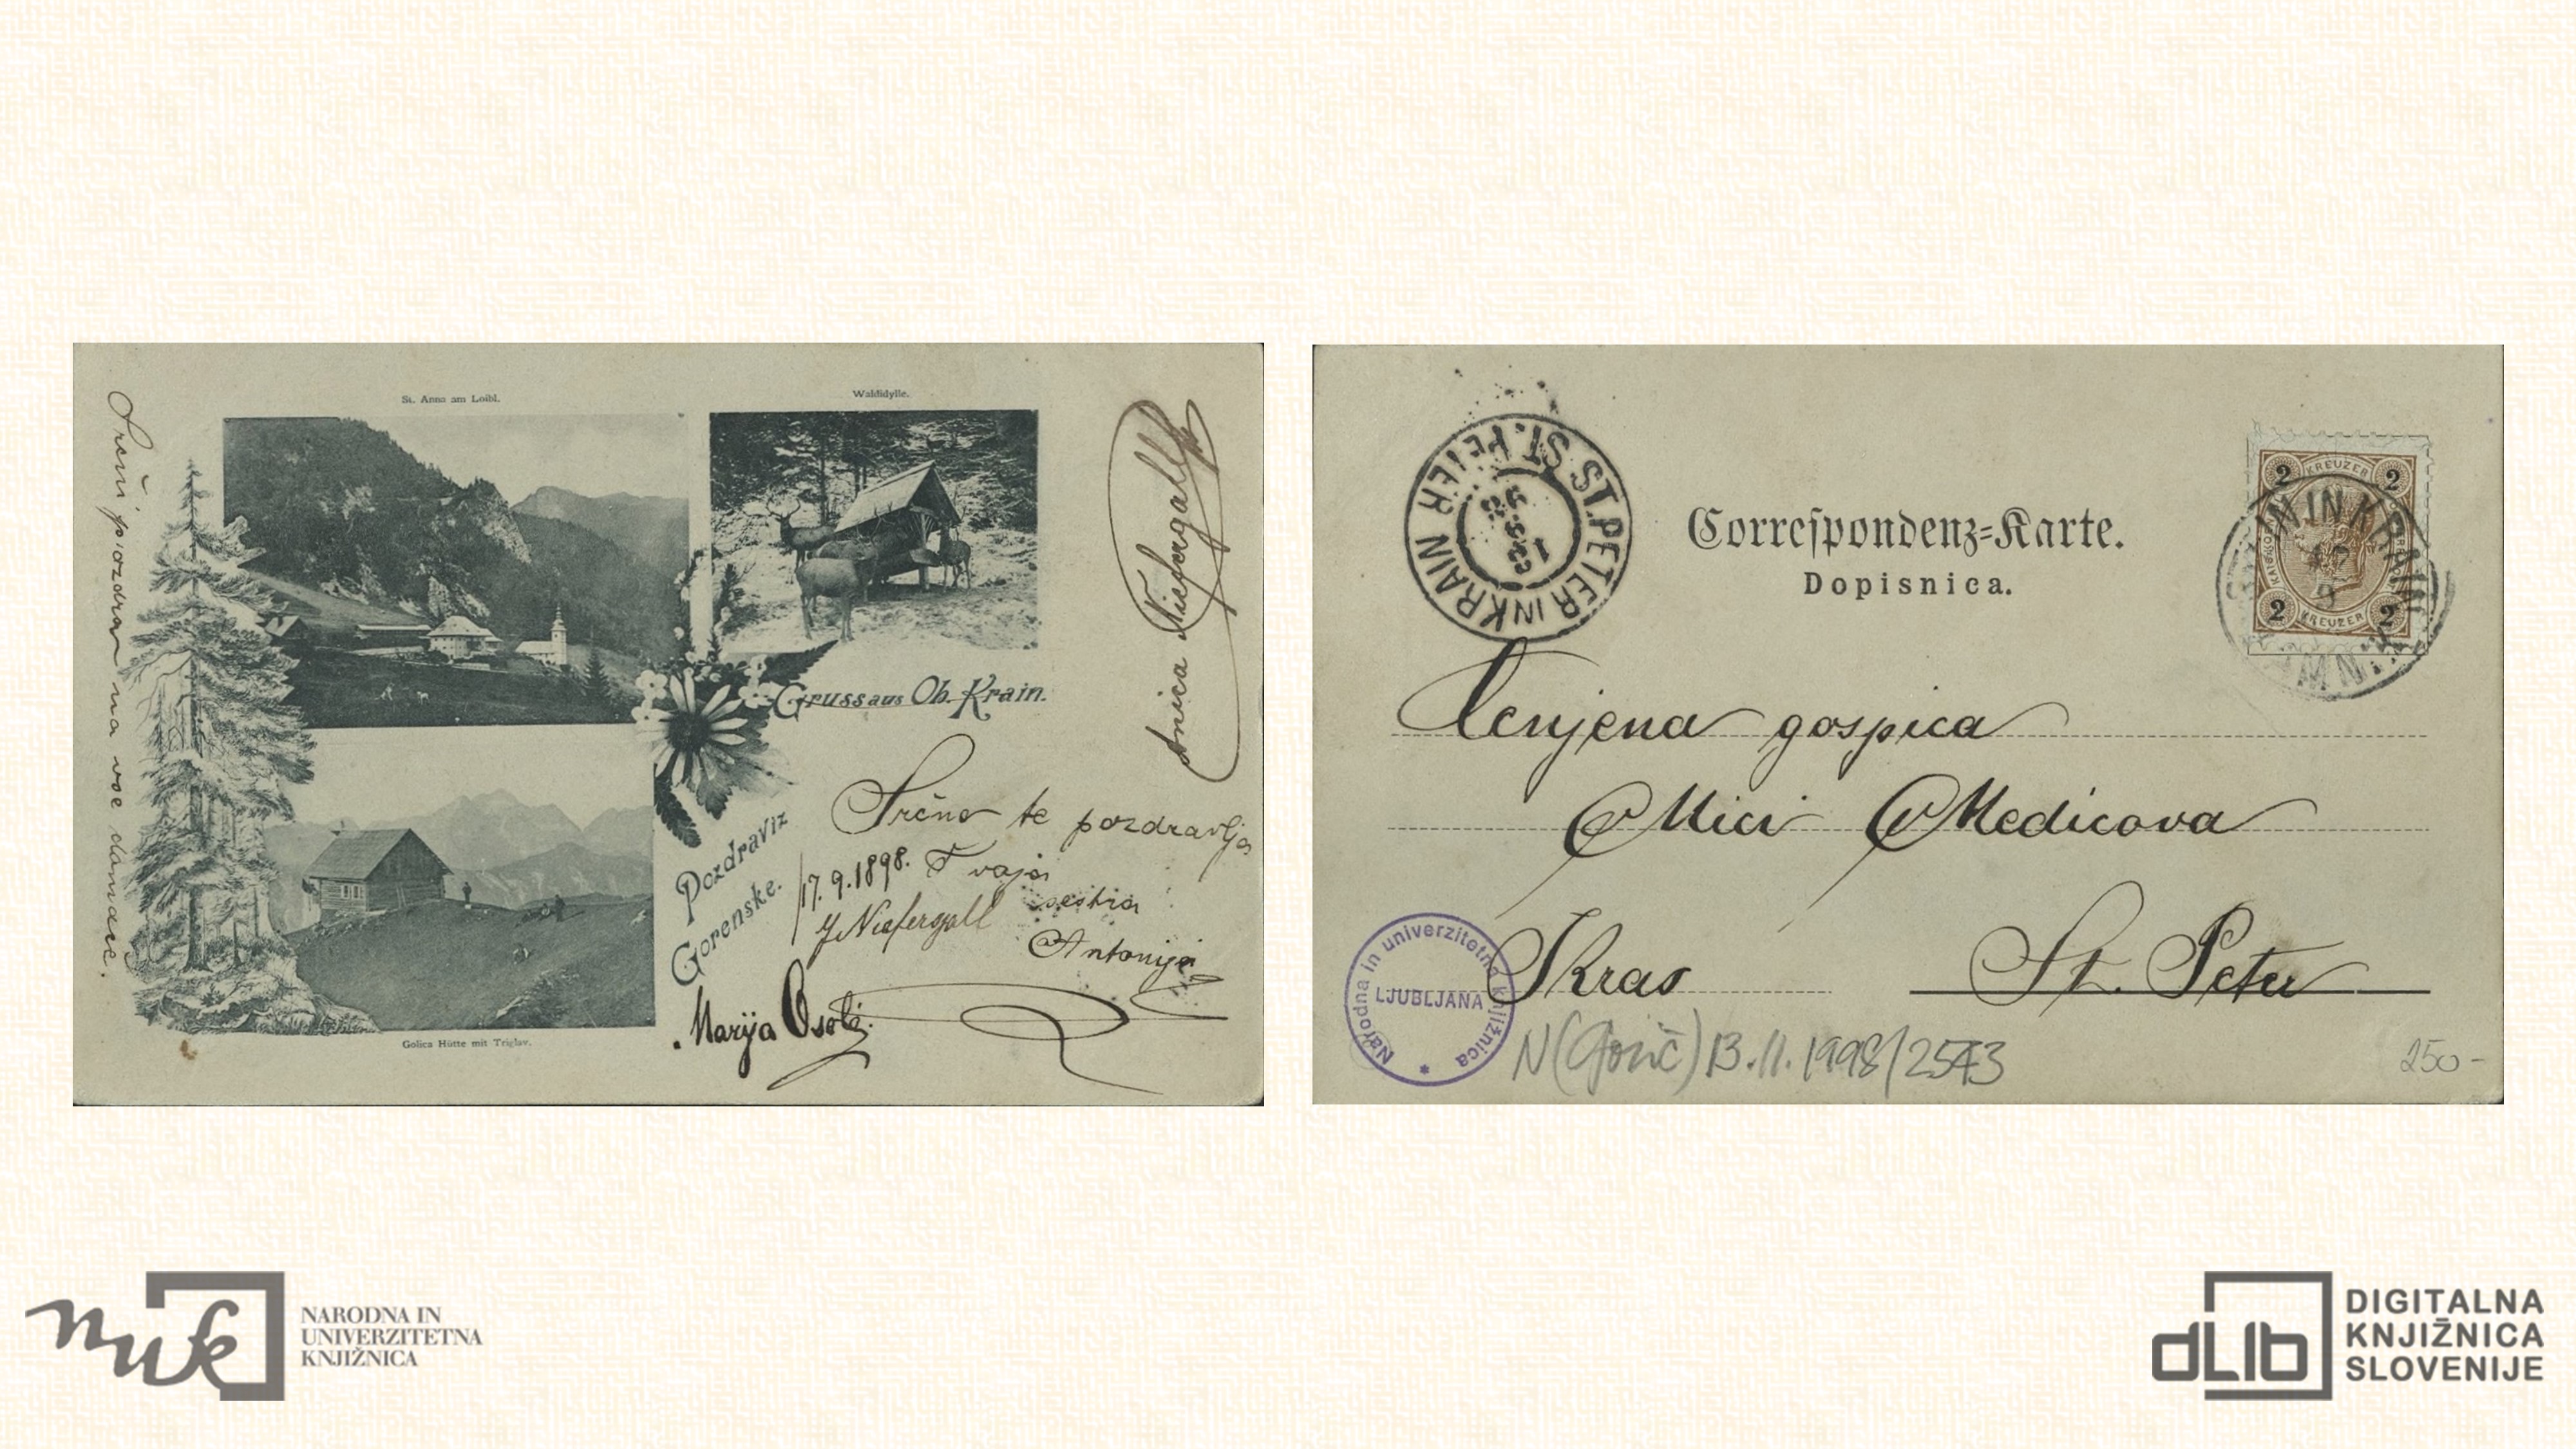 St. Anna am Loibl.
Waldidylle.
Srčni pozdrav na vse domače.
Gruss aus Ob. Krain.
Pozdrav iz
Gorenske.
Golica Hütte mit Triglav.
Anica Niefergall
Srčno te pozdravlja
17.9.1898. Tvoja
sestra
Niefergall
Antonija
Marija Osole
ST. PETER IN KRAIN ST. PETER
Correspondenz-Karte.
Dopisnica.
2 KREUZER 2
2 KREUZER 2
IN KRAIN
Cenjena gospica
Mici Medicova
Kras St. Peter
Narodna in univerzitetna knjižnica
LJUBLJANA
N (Gorič) 13.11.1998/2543
250-
nuk
NARODNA IN
UNIVERZITETNA
KNJIŽNICA
dLib
DIGITALNA
KNJIŽNICA
SLOVENIJE